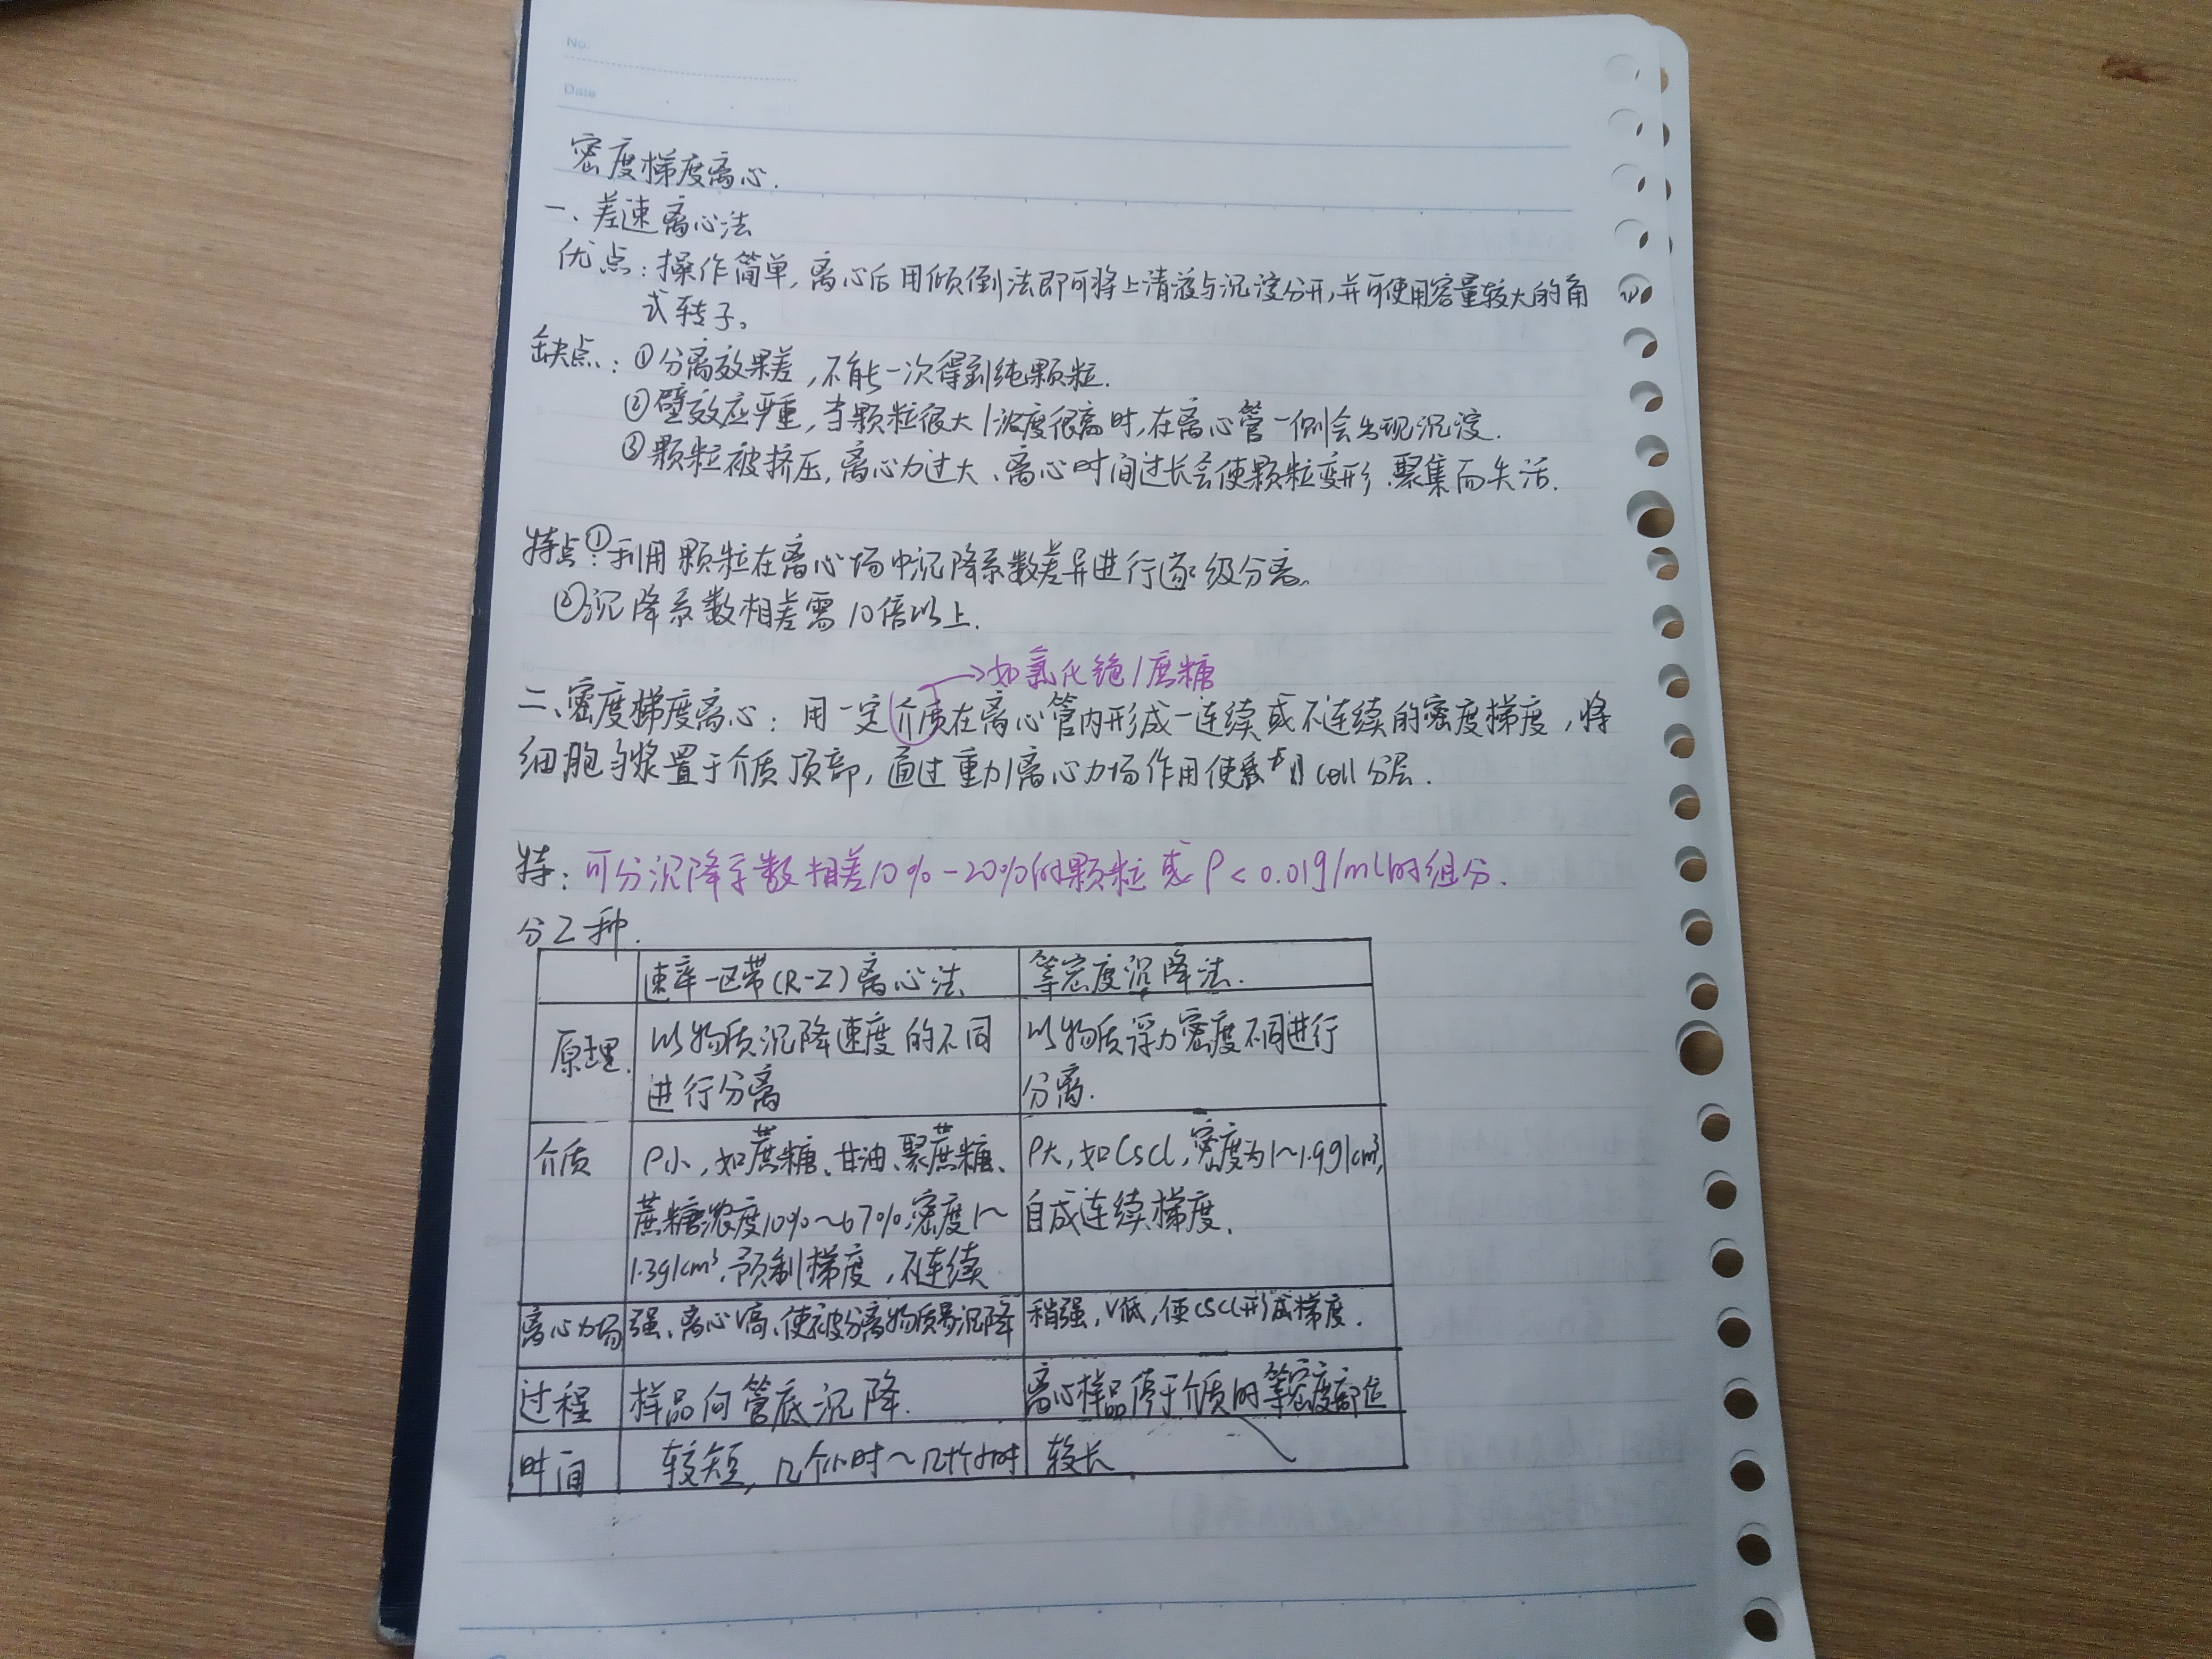 No.
Date
密度梯度离心.
一、差速离心法
优点：操作简单，离心后用倾倒法即可将上清液与沉淀分开，并可使用容量较大的角
式转子。
缺点：①分离效果差，不能一次得到纯颗粒.
②壁效应严重，当颗粒很大/浓度很高时，在离心管一侧会出现沉淀.
③颗粒被挤压，离心力过大、离心时间过长会使颗粒变形、聚集而失活.
特点：①利用颗粒在离心场中沉降系数差异进行逐级分离.
②沉降系数相差需10倍以上.
→如氯化铯/蔗糖
二、密度梯度离心：用一定介质在离心管内形成一连续或不连续的密度梯度，将
细胞匀浆置于介质顶部，通过重力/离心力场作用使 cell分层.
特：可分沉降系数相差10%-20%的颗粒或ρ<0.01g/ml的组分.
分2种.
速率-区带(R-Z)离心法 等密度沉降法.
原理. 以物质沉降速度的不同 以物质浮力密度不同进行
进行分离 分离.
介质 ρ小，如蔗糖、甘油、聚蔗糖、 ρ大，如CsCl，密度为1~1.9g/cm³,
蔗糖浓度10%~67%密度1~ 自成连续梯度.
1.3g/cm³，预制梯度，不连续
离心力场 强、离心V高、使被分离物质沉降 稍强，V低，使CsCl形成梯度.
过程 样品向管底沉降. 离心样品停于介质的等密度部位
时间 较短，几个小时~几十个小时 较长